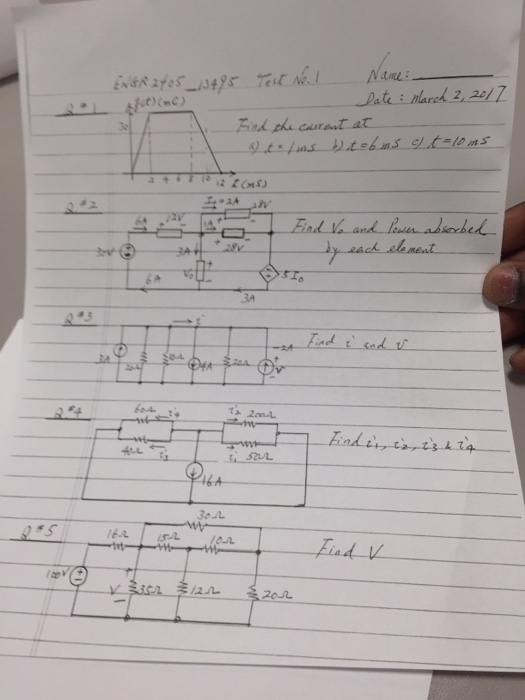 ENGR 2405_13495 Test No. 1 Name:
Date: March 2, 2017
Q#1 q(t)(mC)
30
Find the current at
a) t=1ms b) t=6ms c) t=10ms
2 4 6 8 10 12 t(ms)
Q#2
I0=2A 28V
6A 12V 1A
+ - + -
28V
30V 3A V0 5I0
6A 3A
Find V0 and Power absorbed
by each element
Q#3
i
3A 4A 20Ω -2A V
Find i and v
Q#4
60Ω i4 i2 200Ω
40Ω i3 i1 50Ω
16A
Find i1, i2, i3 & i4
Q#5
30Ω
16Ω 15Ω 10Ω
100V V 35Ω 12Ω 20Ω
Find V